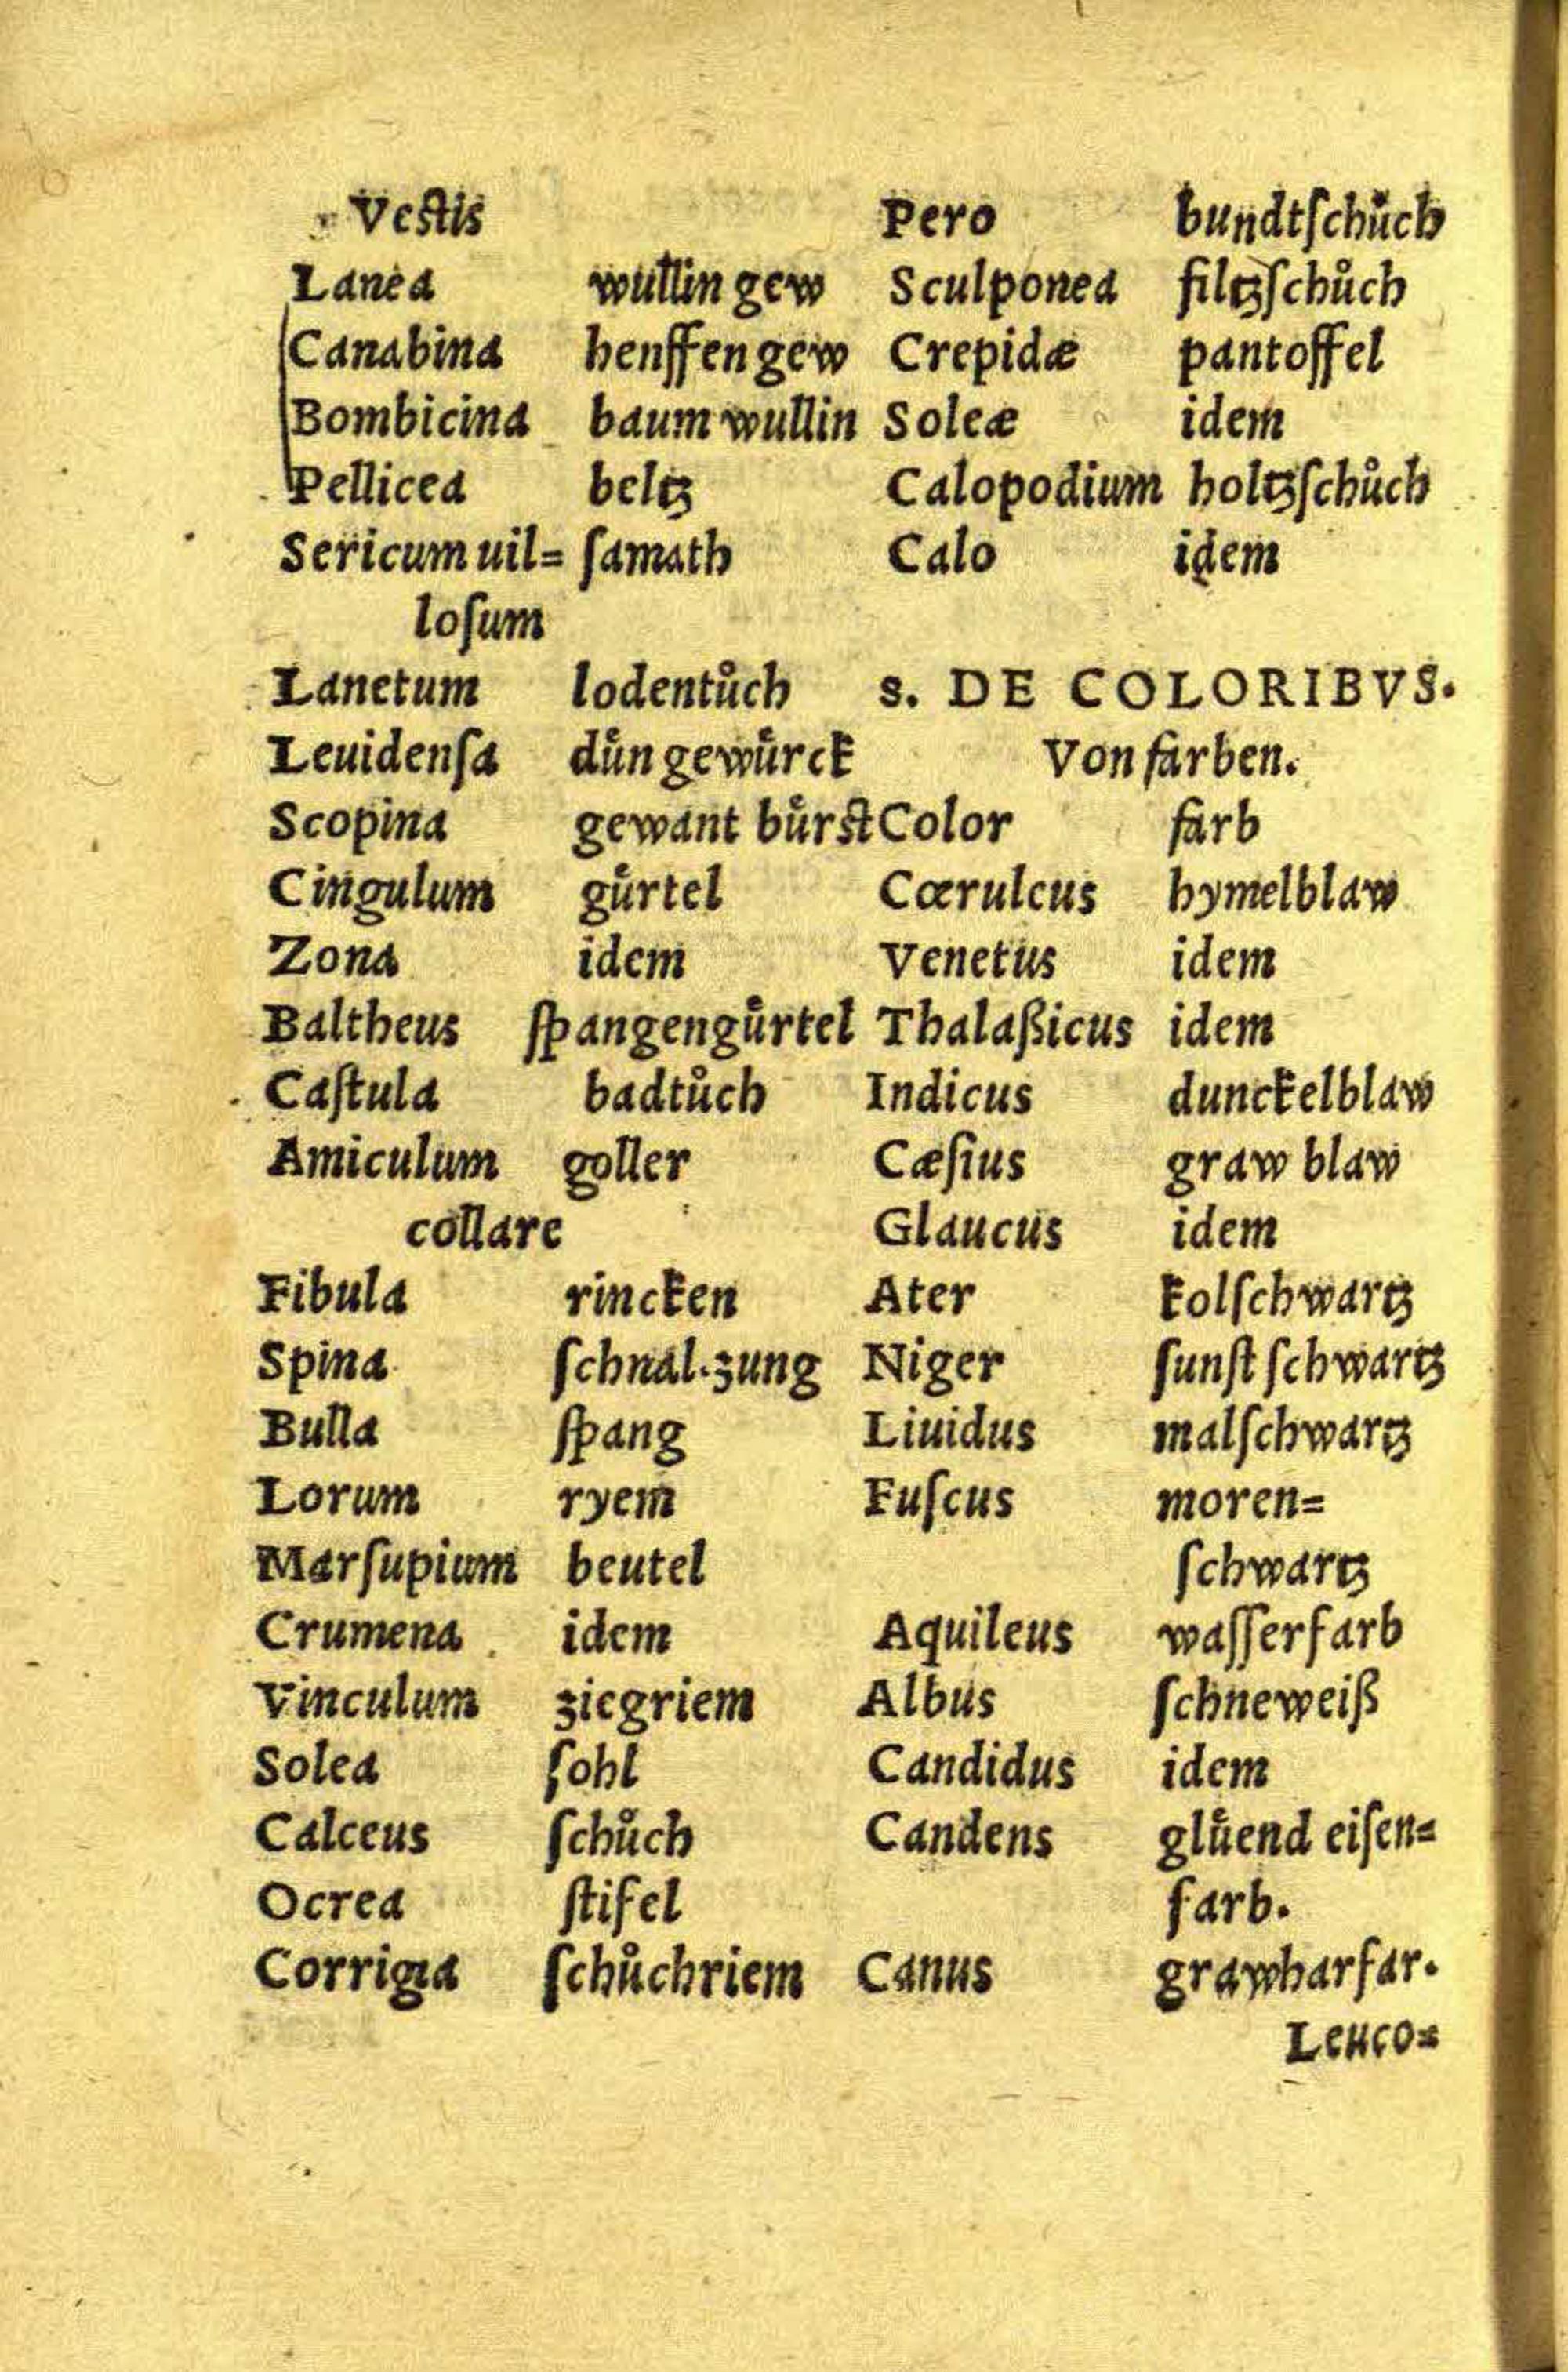 Vestis
Lanea wullin gew
Canabina henffen gew
Bombicina baum wullin
Pellicea beltz
Sericum uil= ſamath
loſum
Lanetum lodentůch
Leuidenſa dün gewürck
Scopina gewant bürst
Cingulum gürtel
Zona idem
Baltheus ſpangengürtel
Caſtula badtůch
Amiculum goller
collare
Fibula rincken
Spina ſchnal.zung
Bulla ſpang
Lorum ryem
Marſupium beutel
Crumena idem
Vinculum ziegriem
Solea ſohl
Calceus ſchůch
Ocrea ſtifel
Corrigia ſchůchriem
Pero bundtſchůch
Sculponea filtzſchůch
Crepidæ pantoffel
Soleæ idem
Calopodium holtzſchůch
Calo idem
s. DE COLORIBVS.
Von farben.
Color farb
Cœruleus hymelblaw
Venetus idem
Thalaßicus idem
Indicus dunckelblaw
Cæſius graw blaw
Glaucus idem
Ater kolſchwartz
Niger ſunſt ſchwartz
Liuidus malſchwartz
Fuſcus moren=
ſchwartz
Aquileus waſſerfarb
Albus ſchneweiß
Candidus idem
Candens glüend eiſen=
farb.
Canus grawharfar.
Leuco=